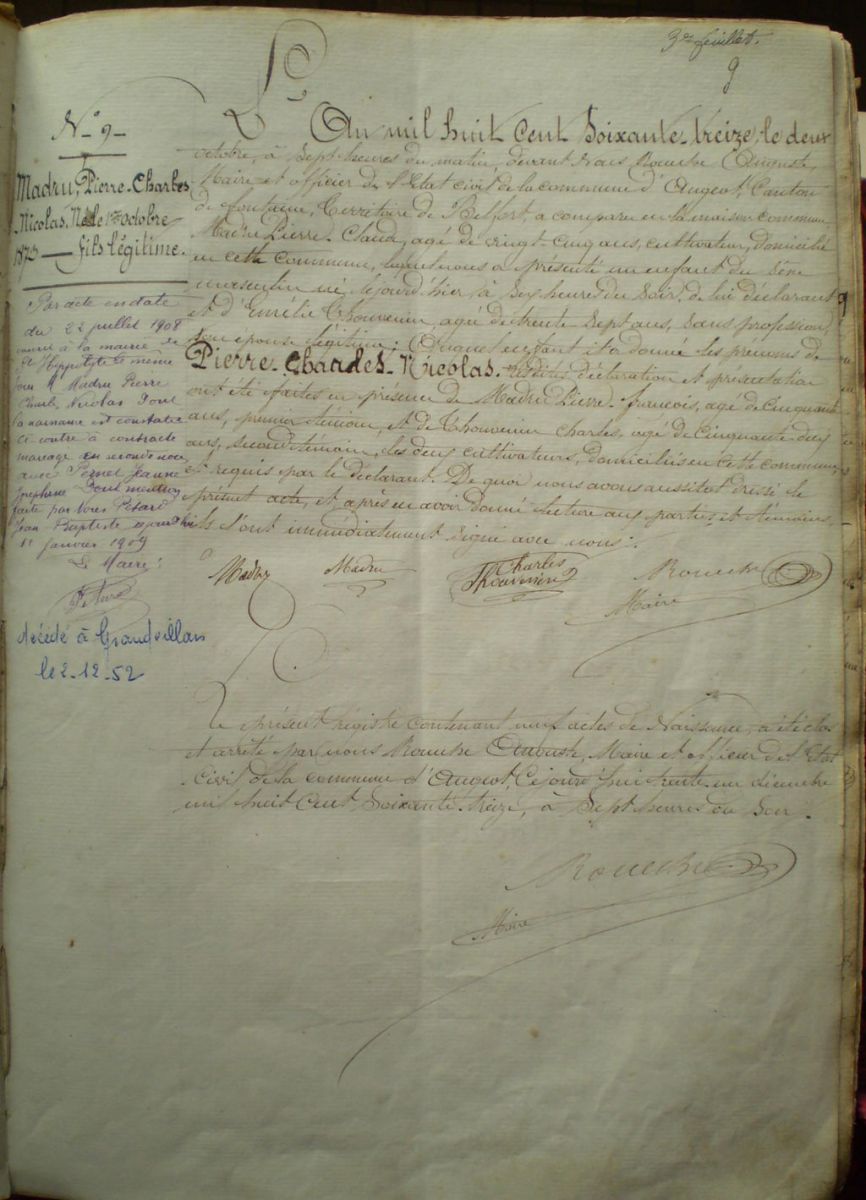 3e feuillet.
9
N° 9
Madru, Pierre-Charles
Nicolas. Né le 1er octobre
1873 — fils légitime.
Par acte en date
du 22 juillet 1908
à la mairie de
St Hippolyte le même
jour M. Madru Pierre
Charles Nicolas dont
la naissance est constatée
ci contre à contracté
mariage en secondes noces
avec Jeanne
Josephine Dont mention
faite par Nous Pétard
Jean Baptiste
11 janvier 1909
Le Maire :
décédé à Grandvillars
le 2-12-52
L'An mil huit cent Soixante-treize, le deux
octobre, à Sept heures du matin, devant Nous Roueche Auguste,
Maire et officier de l'Etat civil de la commune d'Angeot, Canton
de fontaine, Territoire de Belfort, a comparu en la maison commune
Madru Pierre-Claude, agé de vingt-cinq ans, cultivateur, domicilié
en cette commune, lequel nous a présenté un enfant du sexe
masculin né le jour d'hier, à Six heures du Soir, de lui déclarant
et d'Emélie Thouvenin, agée de trente Sept ans, Sans profession,
son épouse légitime ; Auquel enfant il a donné les prénoms de
Pierre-Charles-Nicolas. Lesdites déclaration et présentation
ont été faites en présence de Madru Pierre-francois, agé de Cinquante
ans, premier témoin, et de Thouvenin Charles, agé de Cinquante-deux
ans, second témoin, les deux cultivateurs, domiciliés en cette commune,
et requis par le déclarant. De quoi nous avons aussitot dressé le
présent acte, et après en avoir donné lecture aux parties et témoins,
ils l'ont immédiatement signé avec nous :
Madru Madru Charles Thouvenin Roueche
Maire
Le présent régistre contenant neuf actes de Naissance, a été clos
et arrêté par nous Roueche Auguste, Maire et officier de l'Etat
Civil de la commune d'Angeot, Cejourd'hui trente-un décembre
mil huit Cent Soixante-treize, à Sept heures du Soir.
Roueche
Maire